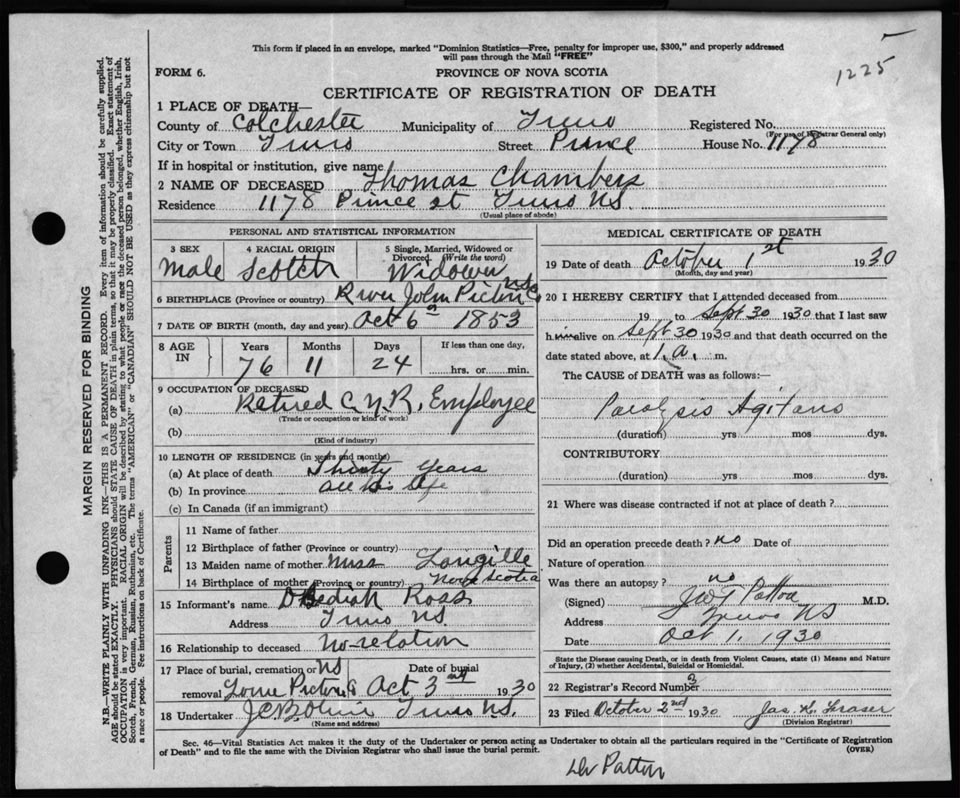 This form if placed in an envelope, marked "Dominion Statistics—Free, penalty for improper use, $300," and properly addressed
will pass through the Mail "FREE"
1225
FORM 6.
PROVINCE OF NOVA SCOTIA
CERTIFICATE OF REGISTRATION OF DEATH
1 PLACE OF DEATH—
County of Colchester Municipality of Truro Registered No.
(For use of Registrar General only)
City or Town Truro Street Prince House No. 1178
If in hospital or institution, give name
2 NAME OF DECEASED Thomas Chambers
Residence 1178 Prince st Truro N.S.
(Usual place of abode)
PERSONAL AND STATISTICAL INFORMATION
3 SEX 4 RACIAL ORIGIN 5 Single, Married, Widowed or Divorced (Write the word)
Male Scotch Widower
6 BIRTHPLACE (Province or country) River John Pictou Co NS
7 DATE OF BIRTH (month, day and year) Oct 6 1853
8 AGE IN Years Months Days If less than one day,
76 11 24 hrs. or min.
9 OCCUPATION OF DECEASED
(a) Retired C.N.R. Employee
(Trade or occupation or kind of work)
(b)
(Kind of industry)
10 LENGTH OF RESIDENCE (in years and months)
(a) At place of death Thirty Years
(b) In province All his life
(c) In Canada (if an immigrant)
Parents
11 Name of father
12 Birthplace of father (Province or country)
13 Maiden name of mother Miss Langille
14 Birthplace of mother (Province or country) Nova Scotia
15 Informant's name Obediah Ross
Address Truro N.S.
16 Relationship to deceased No relation
17 Place of burial, cremation or removal Date of burial
NS
Pictou Oct 3 1930
18 Undertaker Truro N.S.
(Name and address)
MEDICAL CERTIFICATE OF DEATH
19 Date of death October 1st 1930
(Month, day and year)
20 I HEREBY CERTIFY that I attended deceased from
19 to Sept 30 1930 that I last saw
him alive on Sept 30 1930 and that death occurred on the
date stated above, at 1 a. m.
The CAUSE of DEATH was as follows:—
Paralysis Agitans
(duration) yrs mos dys.
CONTRIBUTORY
(duration) yrs mos dys.
21 Where was disease contracted if not at place of death?
Did an operation precede death? no Date of
Nature of operation
Was there an autopsy? no
(Signed) Patton M.D.
Address Truro NS
Date Oct 1, 1930
State the Disease causing Death, or in death from Violent Causes, state (1) Means and Nature
of Injury, (2) whether Accidental, Suicidal or Homicidal.
22 Registrar's Record Number 3
23 Filed October 2nd 1930 Jas. K. Fraser
(Division Registrar)
Sec. 46—Vital Statistics Act makes it the duty of the Undertaker or person acting as Undertaker to obtain all the particulars required in the "Certificate of Registration
of Death" and to file the same with the Division Registrar who shall issue the burial permit. (OVER)
Dr Patton
MARGIN RESERVED FOR BINDING
N.B.—WRITE PLAINLY WITH UNFADING INK—THIS IS A PERMANENT RECORD. Every item of information should be carefully supplied.
AGE should be stated EXACTLY. PHYSICIANS should STATE CAUSE OF DEATH in plain terms, so that it may be properly classified. Exact statement of
OCCUPATION is very important. RACIAL ORIGIN will be described by stating to what people or race the deceased person belonged, whether English, Irish,
Scotch, French, German, Russian, Ruthenian, etc. The terms "AMERICAN" or "CANADIAN" SHOULD NOT BE USED as they express citizenship but not
a race or people. See instructions on back of Certificate.